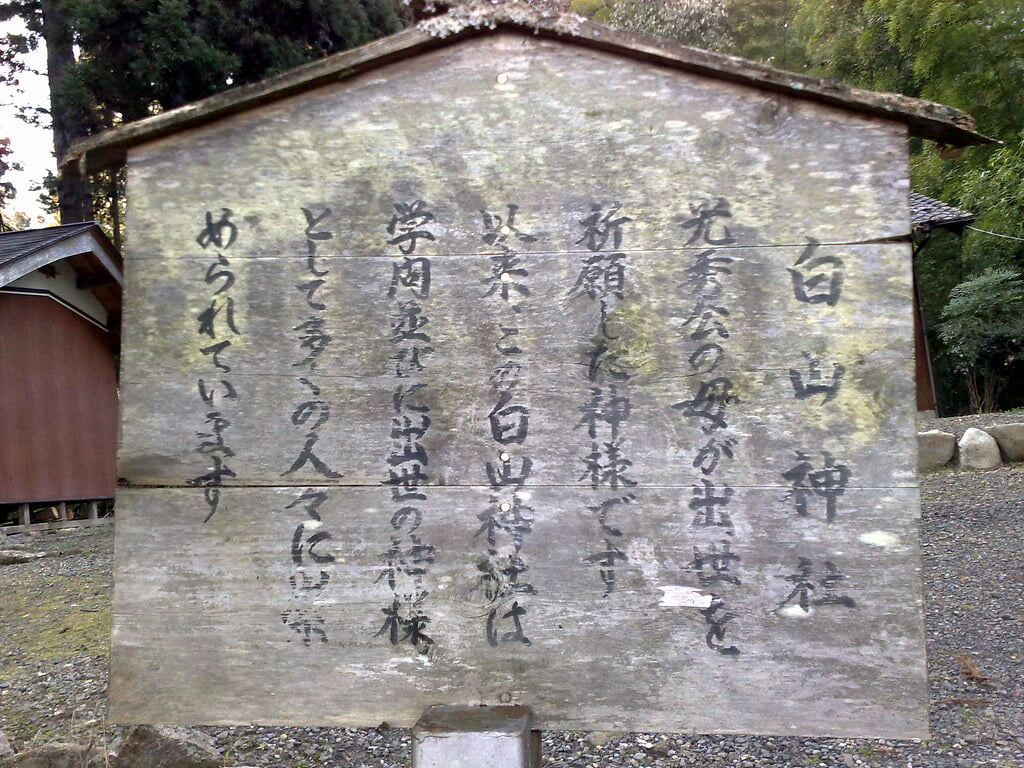 白山神社
光秀公の母が出世を
祈願した神様です
以来、この白山神社は
学問並びに出世の神様
として多くの人々に
められています